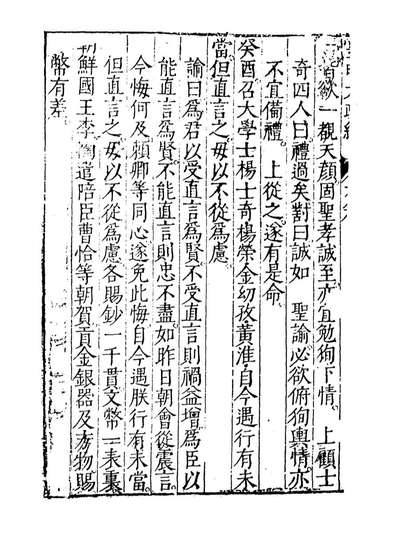 首欲一觀天顏固聖孝誠至亦宜勉狥下情。 上顧士
奇四人曰禮過矣對曰誠如 聖諭必欲俯狥輿情亦
不宜備禮。 上從之遂有是命。
癸酉召大學士楊士奇楊榮金幼孜黃淮自今遇行有未
當但直言之毋以不從爲慮。
諭曰爲君以受直言爲賢不受直言則禍益增爲臣以
能直言爲賢不能直言則忠不盡如昨日朝會從震言
今悔何及頼卿等同心遂免此悔自今遇朕行有未當。
但直言之毋以不從爲慮各賜鈔一千貫文幣一表裏
朝鮮國王李裪遣陪臣曹恰等朝賀貢金銀器及方物賜
幣有差